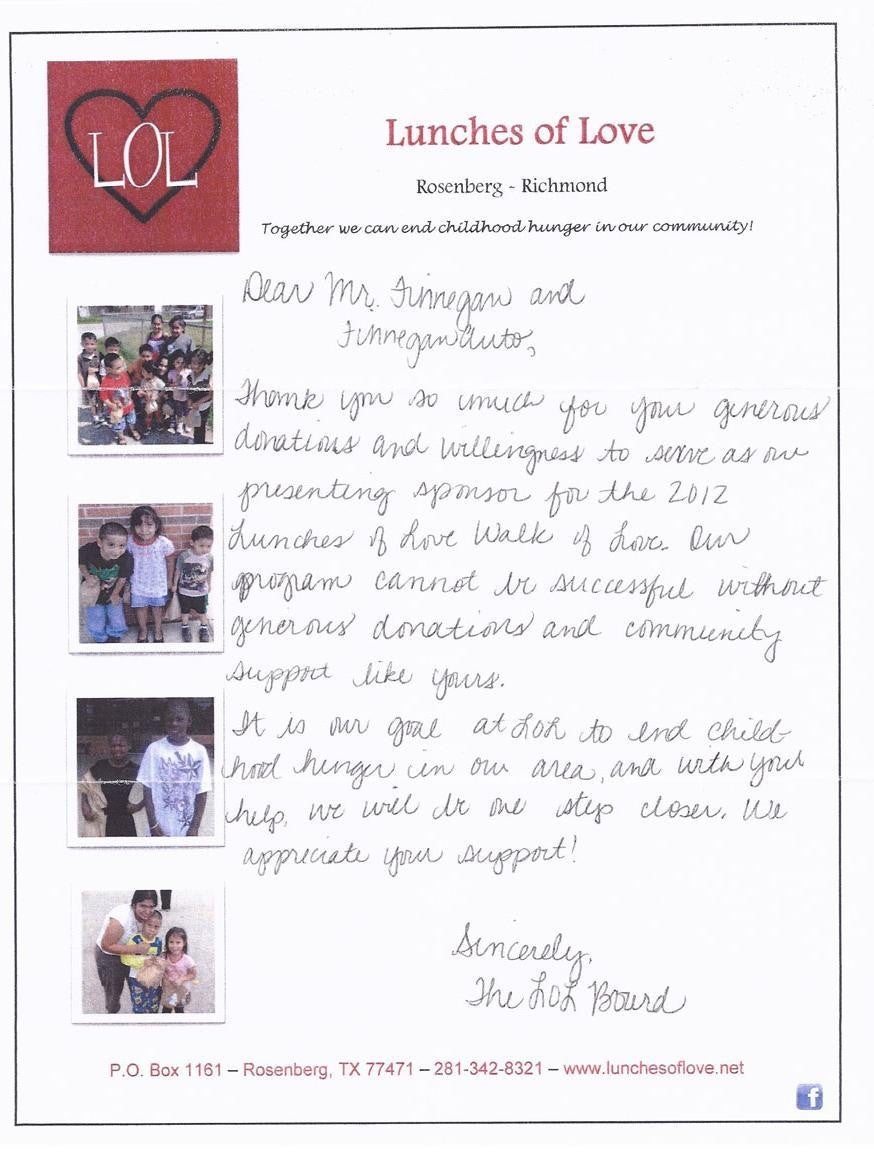 LOL
Lunches of Love
Rosenberg - Richmond
Together we can end childhood hunger in our community!
Dear Mr. Finnegan and
Finnegan Auto,
Thank you so much for your generous
donations and willingness to serve as our
presenting sponsor for the 2012
Lunches of Love Walk of Love. Our
program cannot be successful without
generous donations and community
support like yours.
It is our goal at LOL to end child-
hood hunger in our area, and with your
help, we will be one step closer. We
appreciate your support!
Sincerely,
The LOL Board
P.O. Box 1161 – Rosenberg, TX 77471 – 281-342-8321 – www.lunchesoflove.net
f